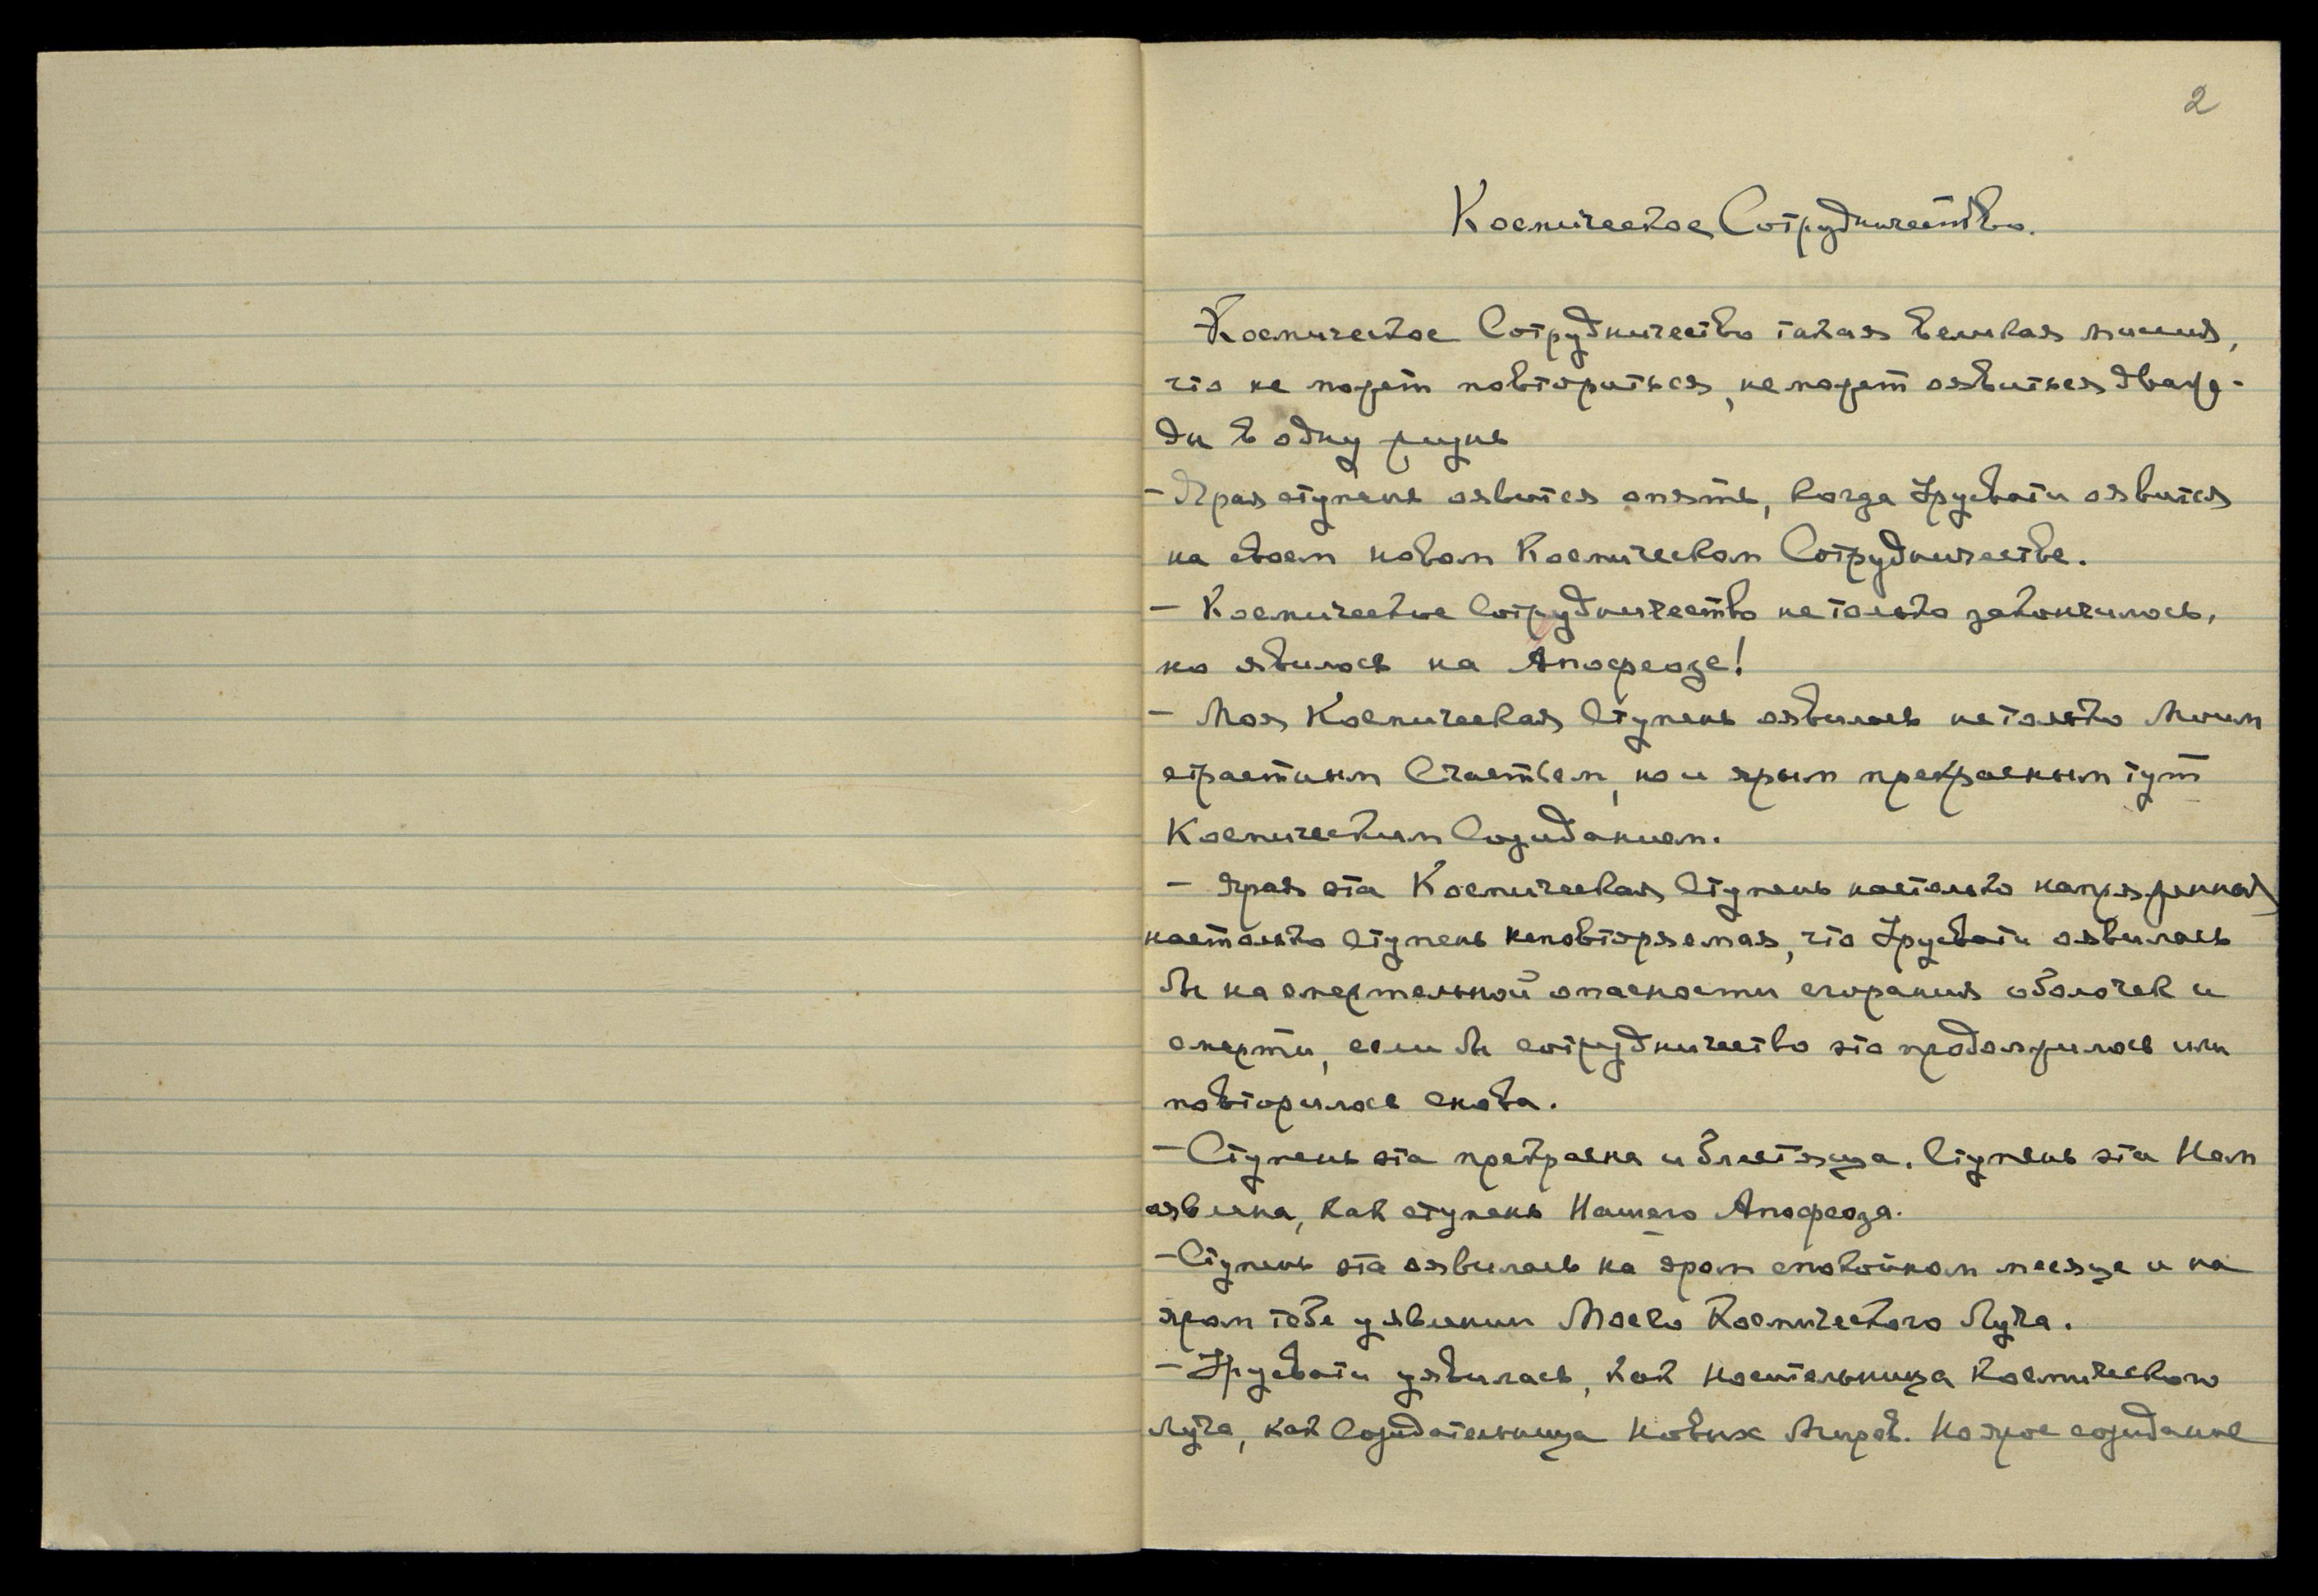 2
Космическое Сотрудничество.
Космическое Сотрудничество такая великая миссия,
что не может повториться, не может оявиться дваж-
ды в одну жизнь
- Ярая ступень оявится опять, когда Урусвати оявится
на своем новом Космическом Сотрудничестве.
- Космическое Сотрудничество не только закончилось,
но явилось на Апофеозе!
- Моя Космическая Ступень оявилась не только Моим
страстным Счастьем, но и ярым прекрасным тут
Космическим Созиданием.
- Ярая эта Космическая Ступень настолько напряженная,
настолько Ступень неповторяемая, что Урусвати оявилась
бы на смертельной опасности сгорания оболочек и
смерти, если бы сотрудничество это продолжилось или
повторилось снова.
- Ступень эта прекрасна и блестяща. Ступень эта Нам
явлена, как ступень Нашего Апофеоза.
- Ступень эта оявилась на яром спокойном месяце и на
яром тебе уявлении Моего Космического Луча.
- Урусвати уявилась, как Носительница Космического
Луча, как Созидательница Новых Миров. Но ярое созидание